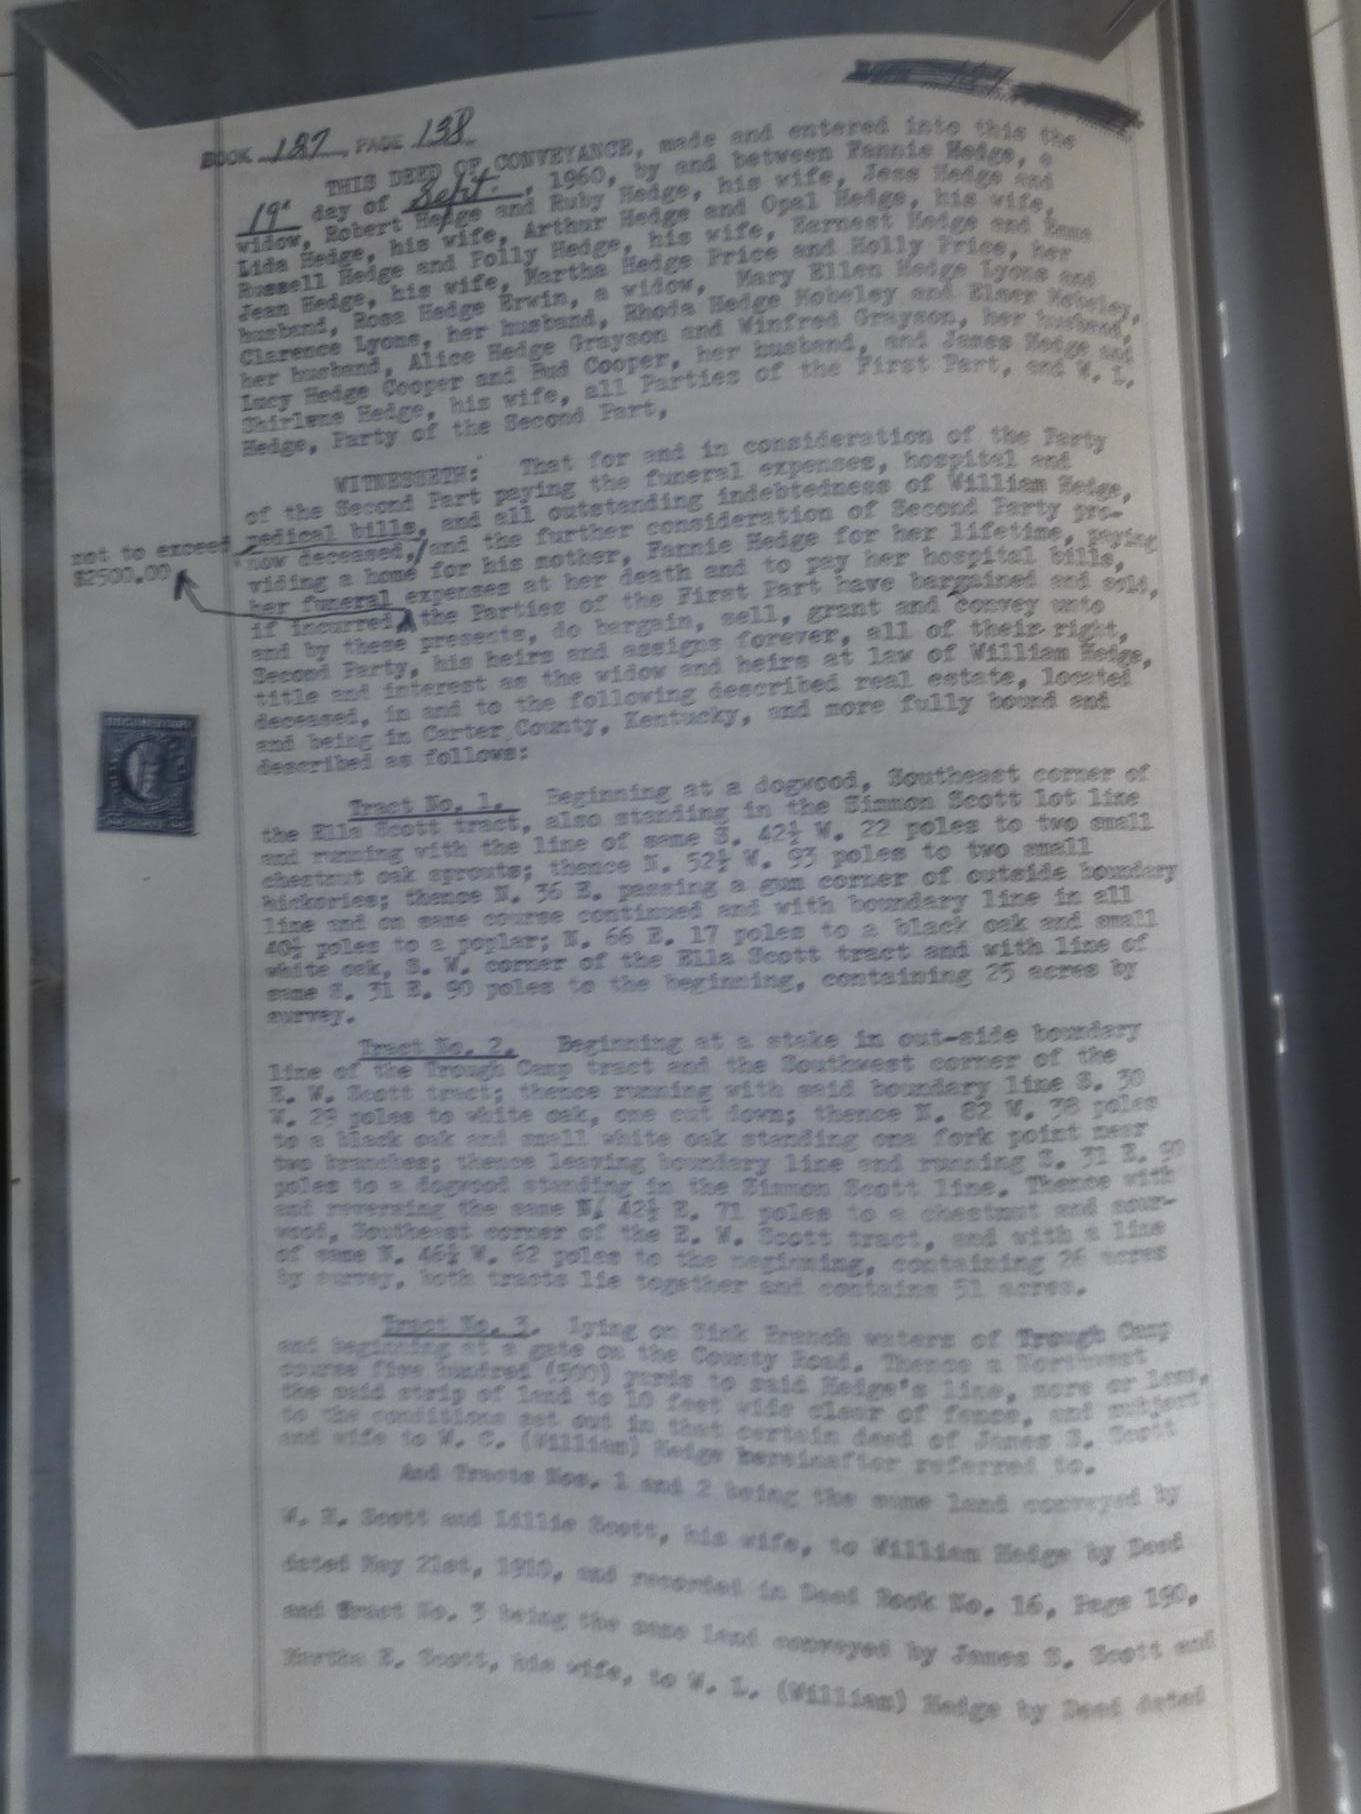 BOOK 187, PAGE 138
THIS DEED OF CONVEYANCE, made and entered into this the
19" day of Sept., 1960, by and between Fannie Hedge, a
widow, Robert Hedge and Ruby Hedge, his wife, Jess Hedge and
Lida Hedge, his wife, Arthur Hedge and Opal Hedge, his wife,
Russell Hedge and Polly Hedge, his wife, Earnest Hedge and
Jean Hedge, his wife, Martha Hedge Price and Holly Price, her
husband, Rosa Hedge Erwin, a widow, Mary Ellen Hedge Lyons and
Clarence Lyons, her husband, Rhoda Hedge Mobeley and Elmer Mobeley,
her husband, Alice Hedge Grayson and Winfred Grayson, her husband,
Lucy Hedge Cooper and Bud Cooper, her husband, and James Hedge and
Shirlene Hedge, his wife, all Parties of the First Part, and W. L.
Hedge, Party of the Second Part,
WITNESSETH: That for and in consideration of the Party
of the Second Part paying the funeral expenses, hospital and
medical bills, and all outstanding indebtedness of William Hedge,
now deceased,/and the further consideration of Second Party pro-
viding a home for his mother, Fannie Hedge for her lifetime, paying
her funeral expenses at her death and to pay her hospital bills,
if incurred, the Parties of the First Part have bargained and sold,
and by these presents, do bargain, sell, grant and convey unto
Second Party, his heirs and assigns forever, all of their right,
title and interest as the widow and heirs at law of William Hedge,
deceased, in and to the following described real estate, located
and being in Carter County, Kentucky, and more fully bound and
described as follows:
not to exceed
$2500.00
DOCUMENTARY
Tract No. 1. Beginning at a dogwood, Southeast corner of
the Ella Scott tract, also standing in the Simmon Scott lot line
and running with the line of same S. 42½ W. 22 poles to two small
chestnut oak sprouts; thence N. 52½ W. 93 poles to two small
hickories; thence N. 36 E. passing a gum corner of outside boundary
line and on same course continued and with boundary line in all
40½ poles to a poplar; N. 66 E. 17 poles to a black oak and small
white oak, S. W. corner of the Ella Scott tract and with line of
same S. 31 E. 90 poles to the beginning, containing 25 acres by
survey.
Tract No. 2. Beginning at a stake in out-side boundary
line of the Trough Camp tract and the Southwest corner of the
E. W. Scott tract; thence running with said boundary line S. 30
W. 29 poles to white oak, one cut down; thence N. 82 W. 38 poles
to a black oak and small white oak standing one fork point near
two branches; thence leaving boundary line and running S. 31 E. 90
poles to a dogwood standing in the Simmon Scott line. Thence with
and reversing the same N/ 42½ E. 71 poles to a chestnut and sour-
wood, Southeast corner of the E. W. Scott tract, and with a line
of same N. 46½ W. 62 poles to the beginning, containing 26 acres
by survey, both tracts lie together and contains 51 acres.
Tract No. 3. Lying on Sink Branch waters of Trough Camp
and beginning at a gate on the County Road. Thence a Northwest
course five hundred (500) yards to said Hedge's line, more or less,
the said strip of land to 10 feet wide clear of fence, and subject
to the conditions set out in that certain deed of James S. Scott
and wife to W. C. (William) Hedge hereinafter referred to.
And Tracts Nos. 1 and 2 being the same land conveyed by
W. H. Scott and Lillie Scott, his wife, to William Hedge by Deed
dated May 21st, 1910, and recorded in Deed Book No. 16, Page 190,
and Tract No. 3 being the same land conveyed by James S. Scott and
Martha E. Scott, his wife, to W. L. (William) Hedge by Deed dated